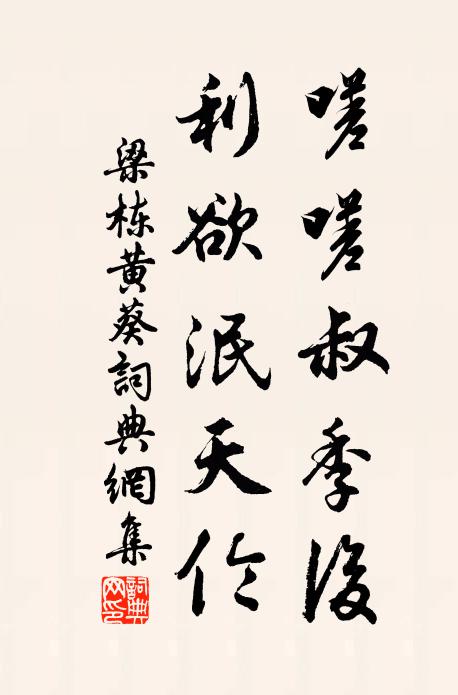 嗟嗟叔季後
利欲泯天伦
梁栋黄葵詞典網集
詞典网印